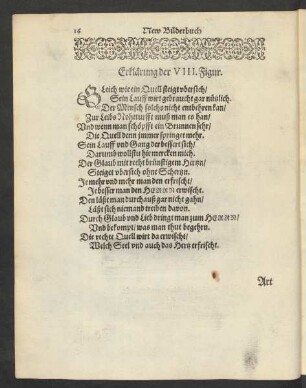 16 New Bilderbuch
Erklärung der VIII. Figur.
GLeich wie ein Quell steigt vbersich/
Sein Lauff wirt gebraucht gar nützlich.
Der Mensch solchs nicht entbehren kan/
Zur Leibs Nohtturfft muß man es han/
Vnd wenn man schöpfft ein Brunnen sehr/
Die Quell denn immer springet mehr.
Sein Lauff vnd Gang der bessert sich/
Darumb wollstu hie mercken mich.
Der Glaub mit recht brünstigem Hertzn/
Steiget vbersich ohne Schertzn.
Je mehr vnd mehr man den erfrischt/
Je besser man den HERRN erwischt.
Den läßt man durchauß gar nicht gahn/
Läßt sich niemand treiben davon.
Durch Glaub vnd Lieb dringt man zum HERRN/
Vnd bekompt/ was man thut begehrn.
Die rechte Quell wirt da erwischt/
Welch Seel vnd auch das Hertz erfrischt.
Art